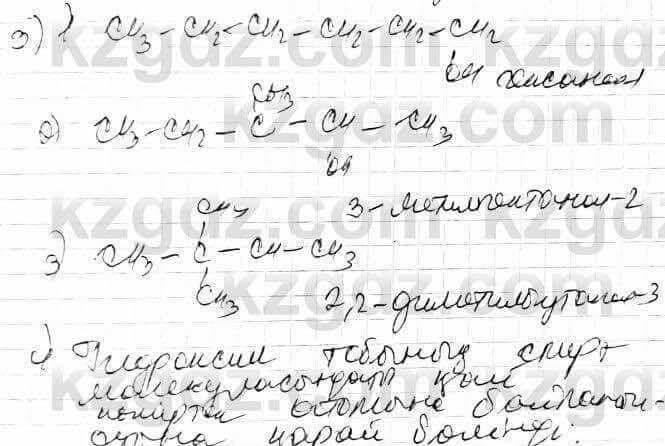 3) 1 CH3 - CH2 - CH2 - CH2 - CH2 - CH2
OH гексанол
CH3
2) CH3 - CH2 - C - CH - CH3
OH
3-метилпентанол-2
CH3
3) CH3 - C - CH - CH3
CH3
2,2-диметилбутанол-3
4) Гидроксил тобының спирт
молекуласындағы қай
көміртек атомына байланысқ-
нына қарай бөлінеді.
kzgdz.com